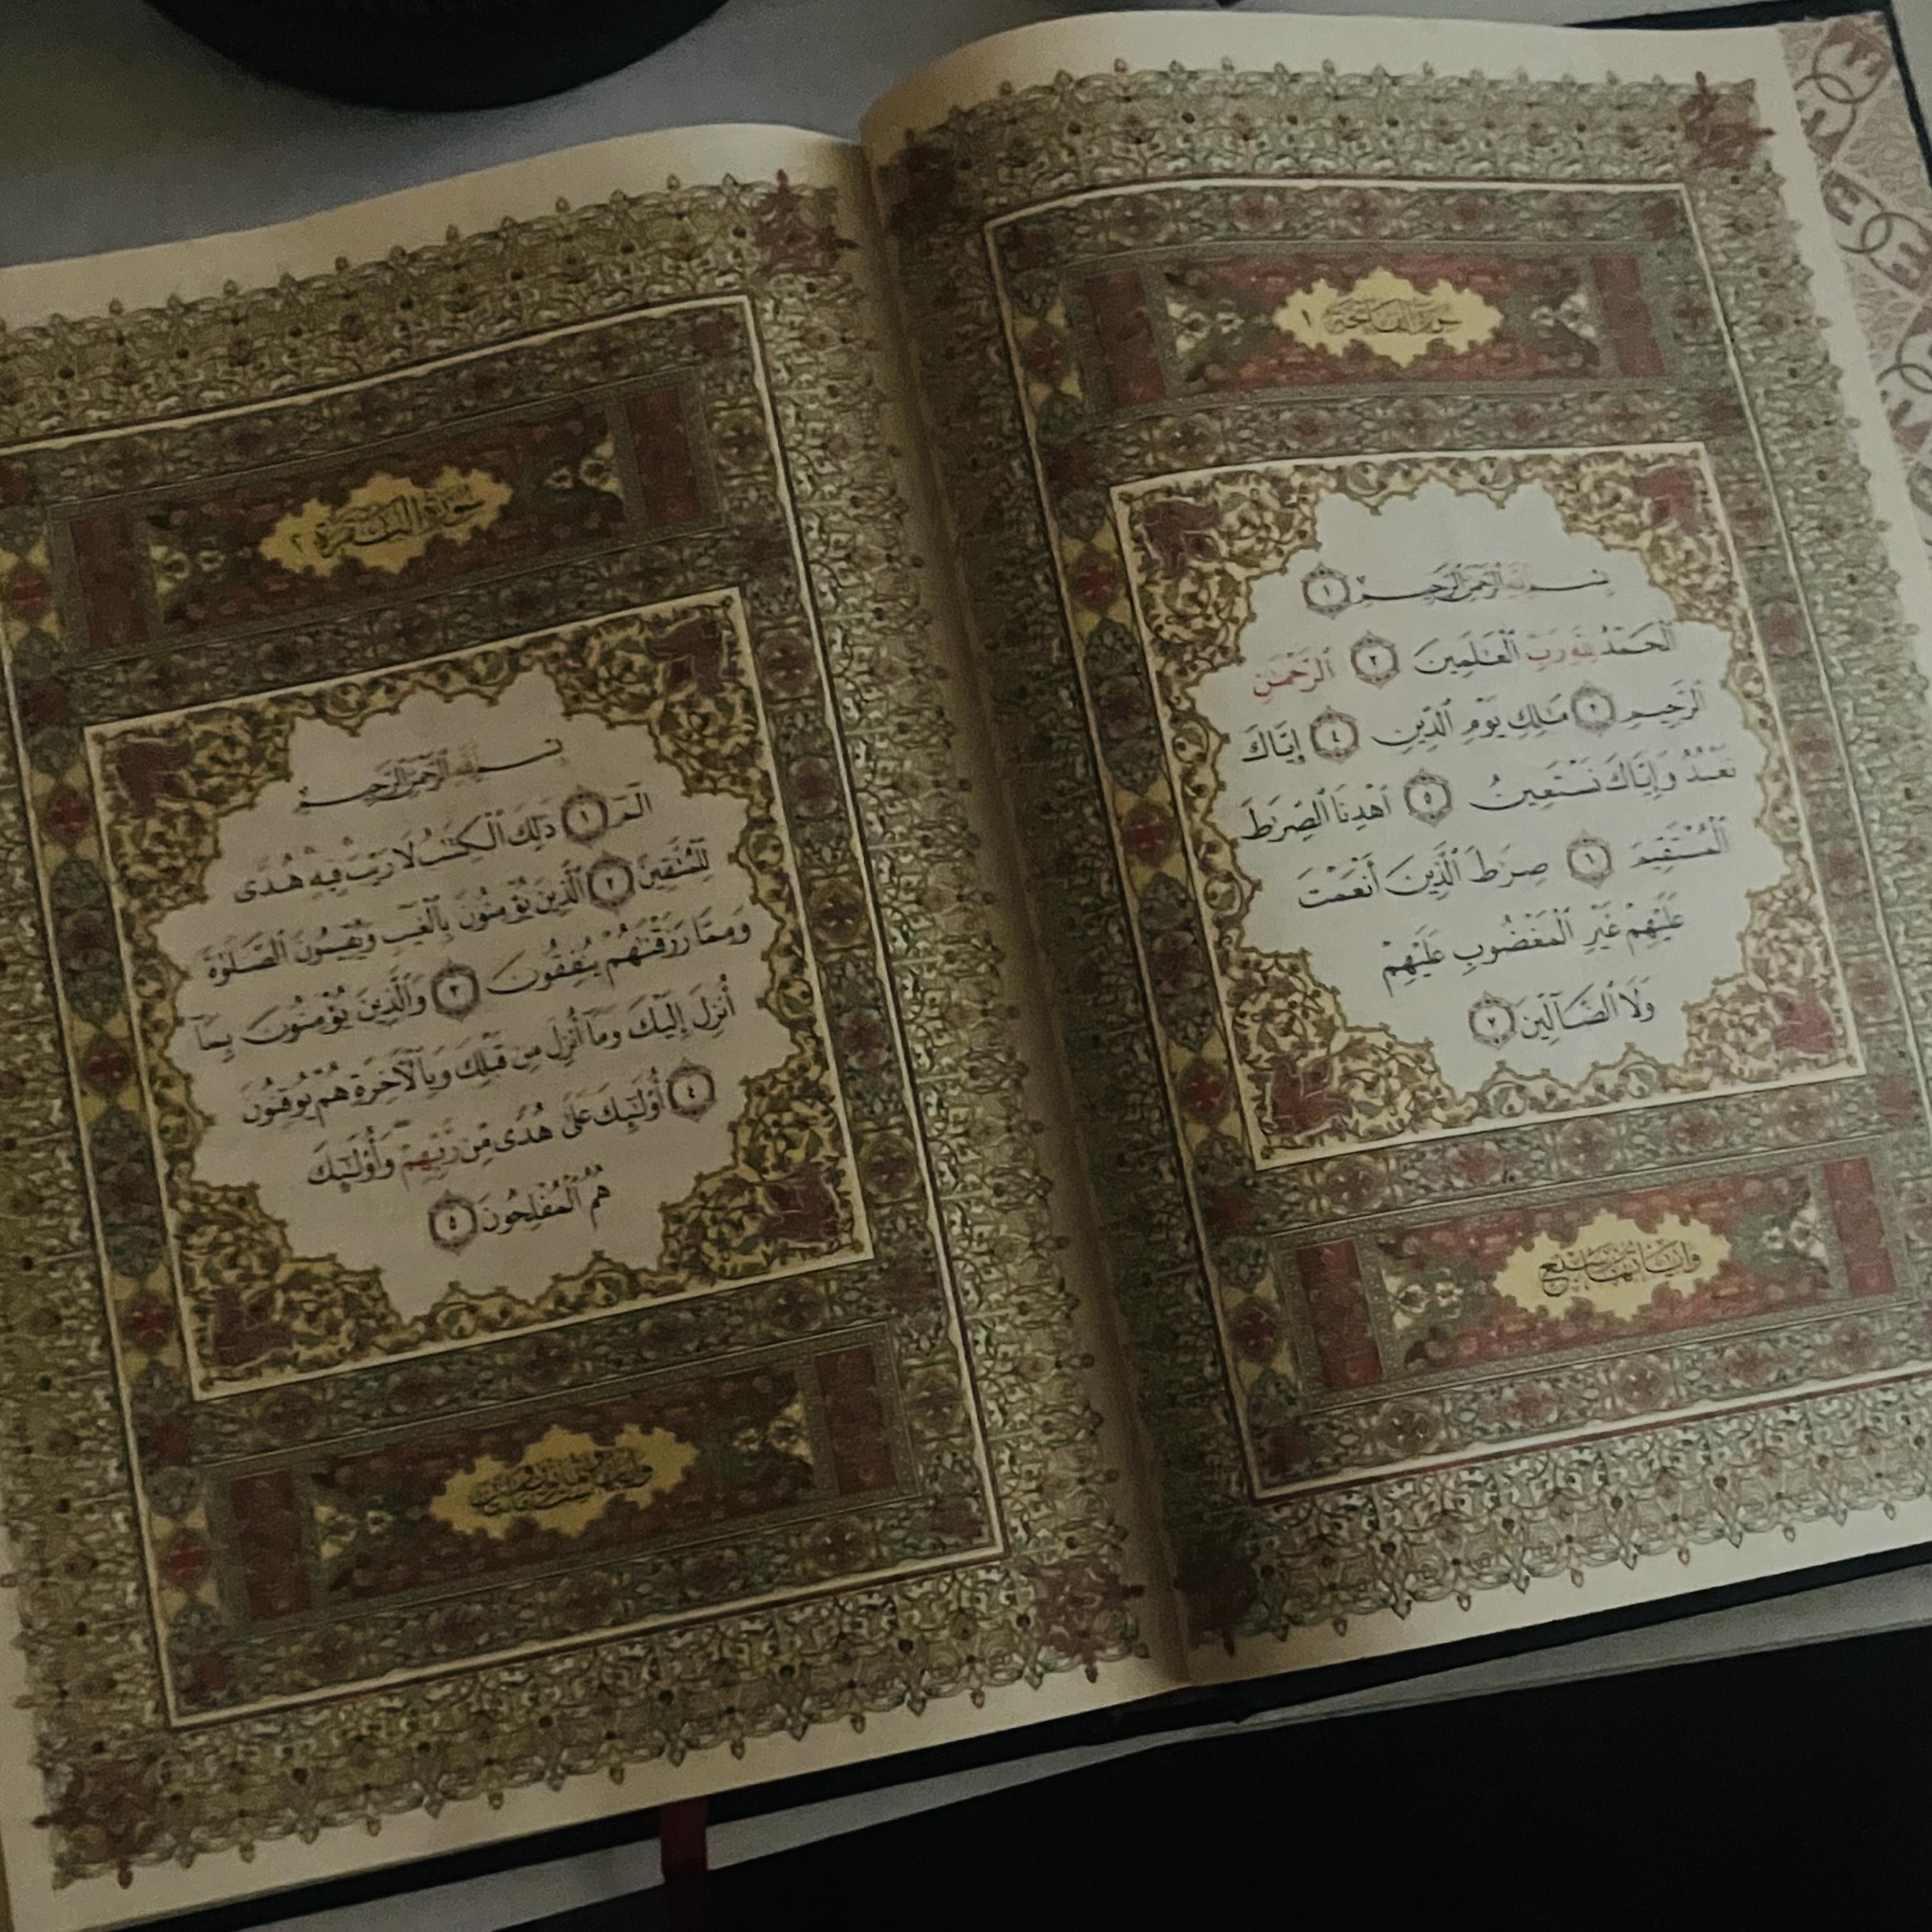 سورة الفاتحة ١
بسم الله الرحمن الرحيم ١
ٱلْحَمْدُ لِلَّهِ رَبِّ ٱلْعَٰلَمِينَ ٢ ٱلرَّحْمَٰنِ
ٱلرَّحِيمِ ٣ مَٰلِكِ يَوْمِ ٱلدِّينِ ٤ إِيَّاكَ
نَعْبُدُ وَإِيَّاكَ نَسْتَعِينُ ٥ ٱهْدِنَا ٱلصِّرَٰطَ
ٱلْمُسْتَقِيمَ ٦ صِرَٰطَ ٱلَّذِينَ أَنْعَمْتَ
عَلَيْهِمْ غَيْرِ ٱلْمَغْضُوبِ عَلَيْهِمْ
وَلَا ٱلضَّآلِّينَ ٧
وآياتها سبع
سورة البقرة ٢
بسم الله الرحمن الرحيم
الٓمٓ ١ ذَٰلِكَ ٱلْكِتَٰبُ لَا رَيْبَ ۛ فِيهِ ۛ هُدًى
لِّلْمُتَّقِينَ ٢ ٱلَّذِينَ يُؤْمِنُونَ بِٱلْغَيْبِ وَيُقِيمُونَ ٱلصَّلَوٰةَ
وَمِمَّا رَزَقْنَٰهُمْ يُنفِقُونَ ٣ وَٱلَّذِينَ يُؤْمِنُونَ بِمَآ
أُنزِلَ إِلَيْكَ وَمَآ أُنزِلَ مِن قَبْلِكَ وَبِٱلْأَخِرَةِ هُمْ يُوقِنُونَ
٤ أُو۟لَٰٓئِكَ عَلَىٰ هُدًى مِّن رَّبِّهِمْ ۖ وَأُو۟لَٰٓئِكَ
هُمُ ٱلْمُفْلِحُونَ ٥